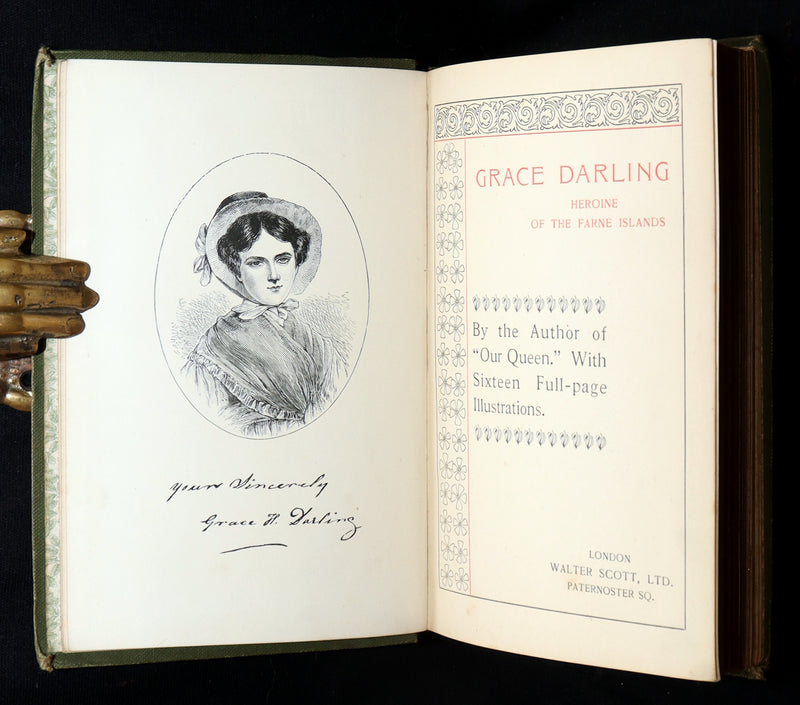 Yours Sincerely
Grace H. Darling
GRACE DARLING
HEROINE
OF THE FARNE ISLANDS
By the Author of
"Our Queen." With
Sixteen Full-page
Illustrations.
LONDON
WALTER SCOTT, LTD.
PATERNOSTER SQ.